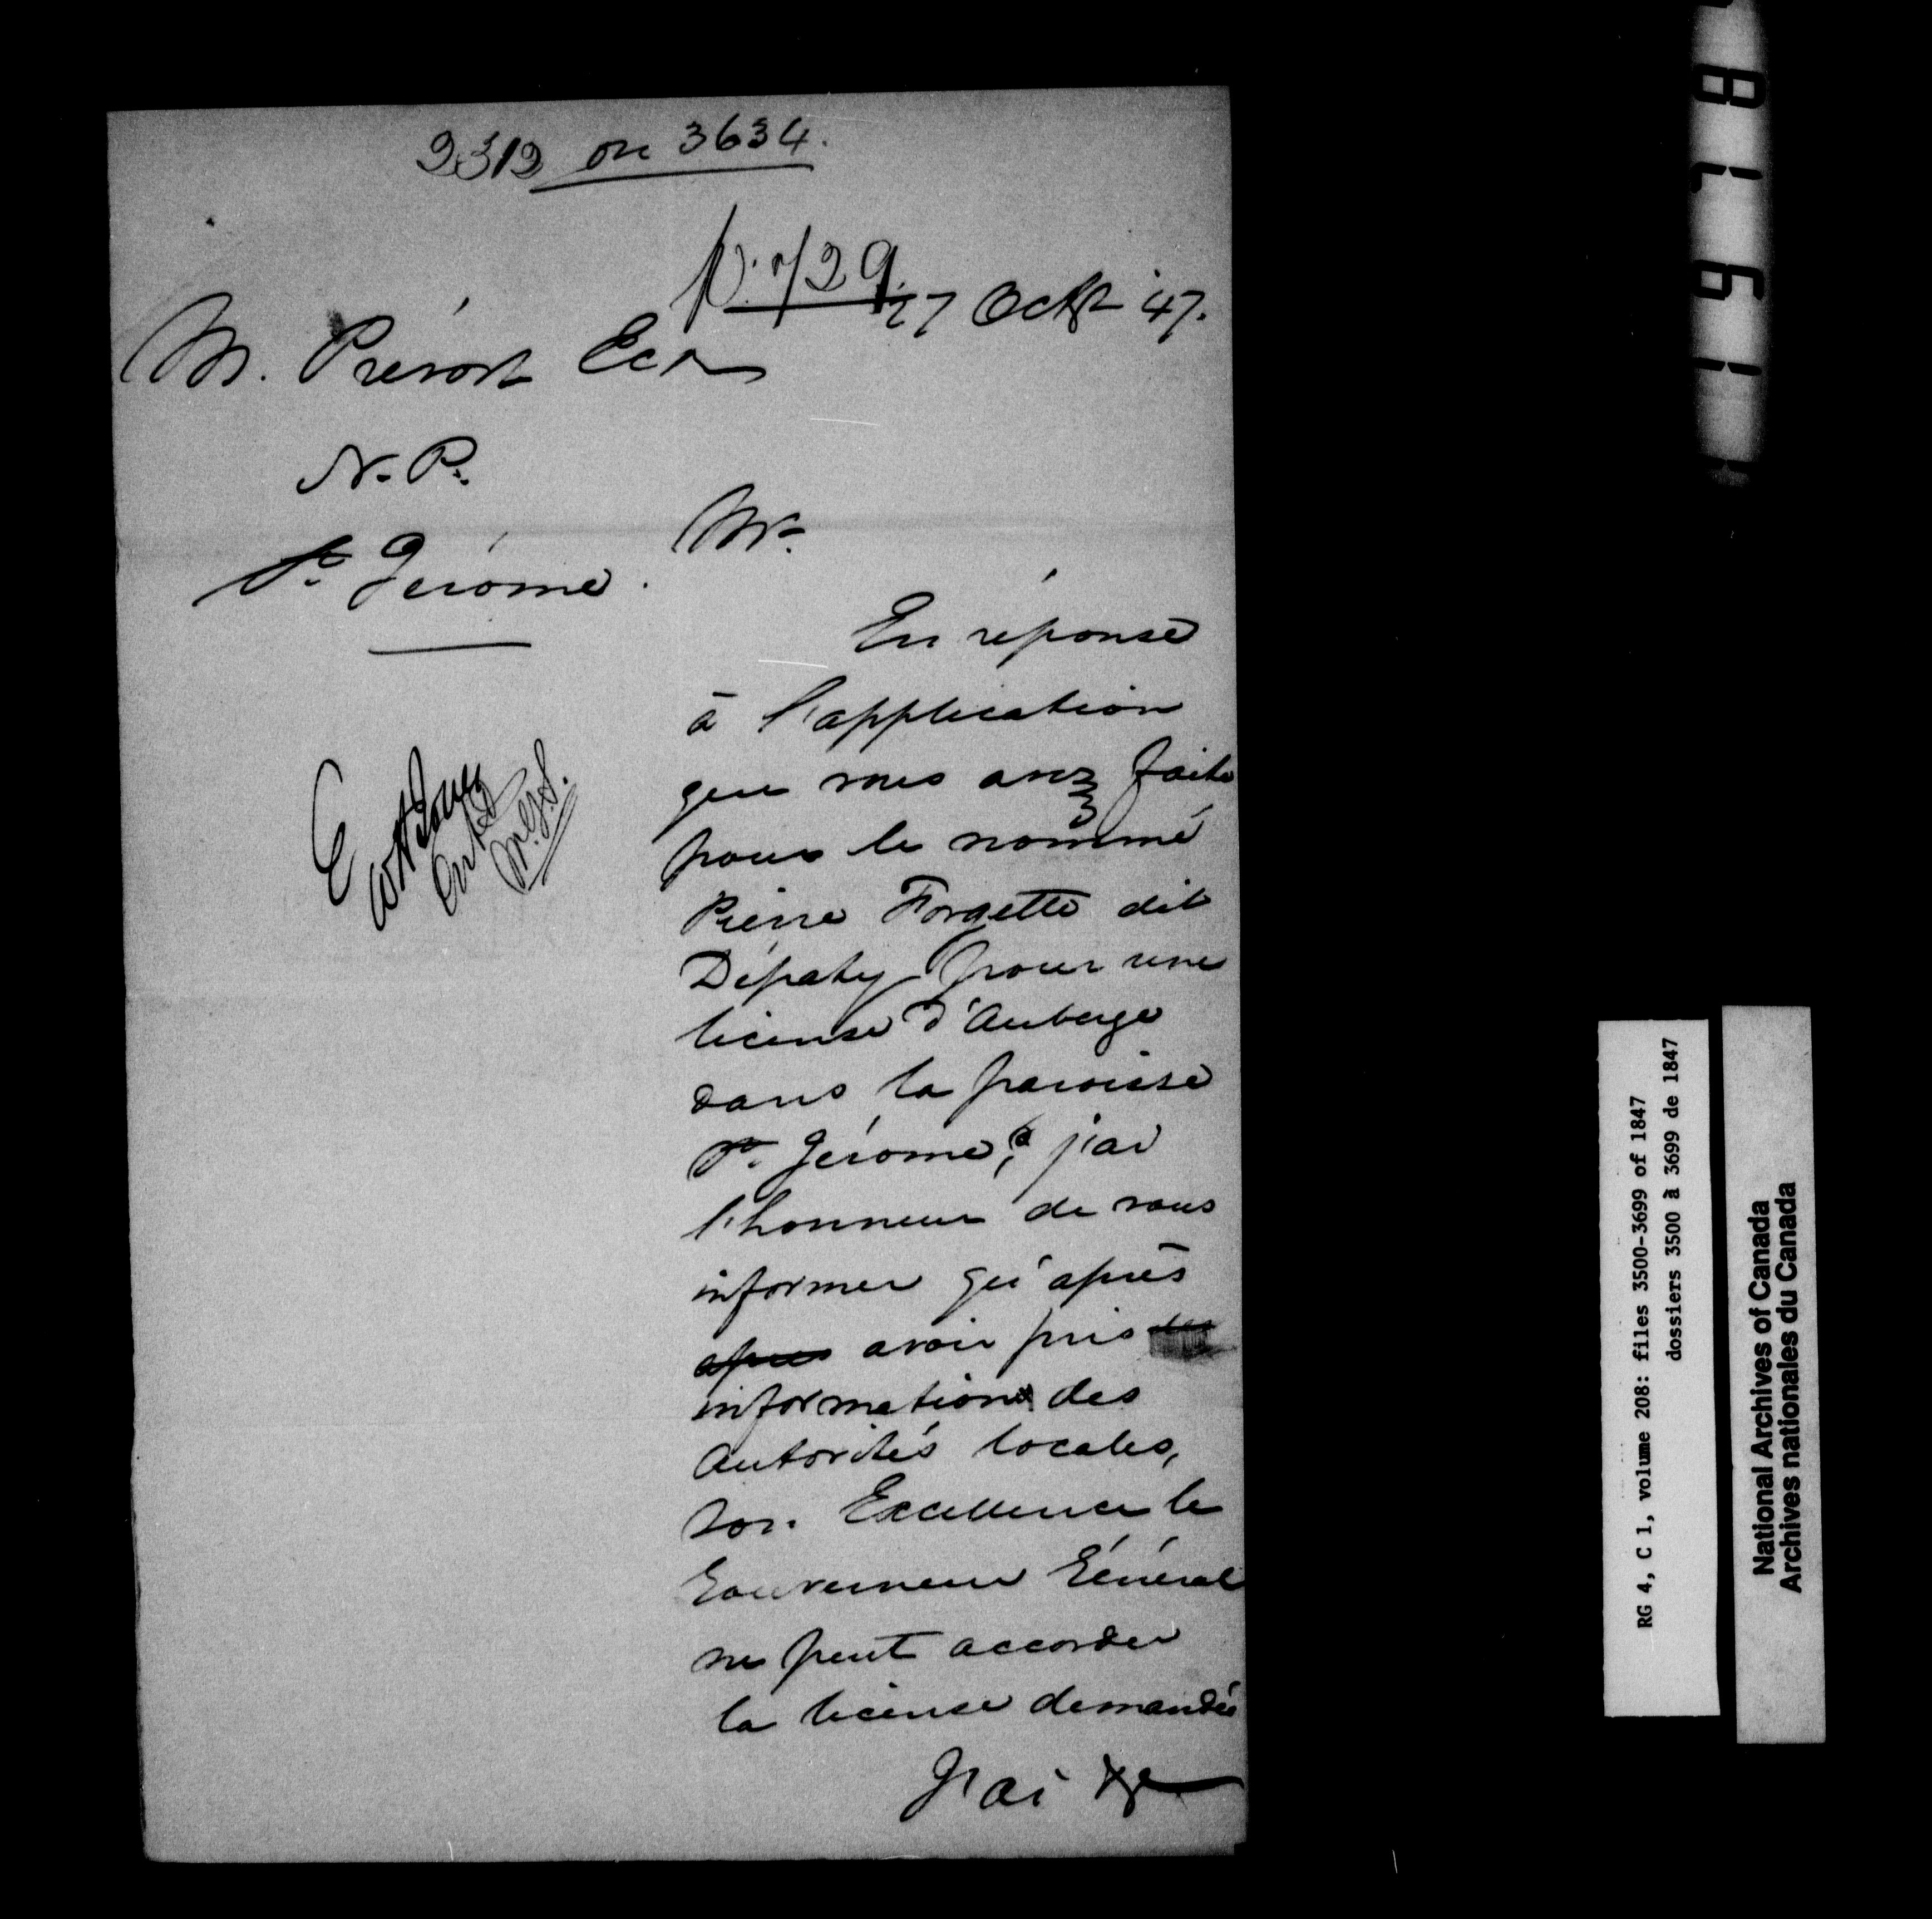 2312 on 3634.
p. 729.
27 Octr '47.
M. Prévost Ecr
N. P.
St. Jérôme.
Mr.
En réponse
à l'application
que vous avez faite
pour le nommé
Pierre Forgette dit
Dépaty pour une
license d'Auberge
dans la paroisse
St. Jérome, j'ai
l'honneur de vous
informer qu'après
après avoir pris des
informations des
Autorités locales,
Son Excellence le
Gouverneur Général
ne peut accorder
la license demandée
J'ai &c
E
Entd
8791
RG 4, C 1, volume 208: files 3500-3699 of 1847
dossiers 3500 à 3699 de 1847
National Archives of Canada
Archives nationales du Canada